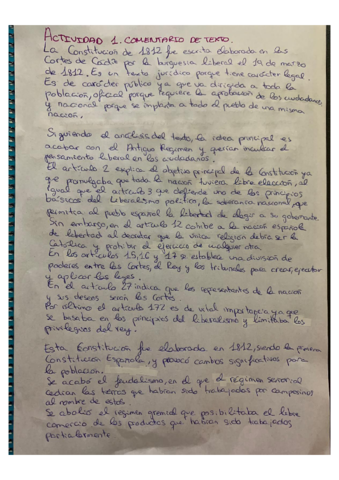 ACTIVIDAD 1. COMENTARIO DE TEXTO.
La Constitución de 1812 fue escrita elaborada en las
Cortes de Cádiz por la burguesía liberal el 19 de marzo
de 1812. Es un texto jurídico porque tiene carácter legal.
Es de carácter público ya que va dirigida a toda la
población, oficial porque requiere la aprobación de los ciudadanos
y nacional porque se implanta a todo el pueblo de una misma
nación.
Siguiendo el análisis del texto, la idea principal es
acabar con el Antiguo Régimen y querían inculcar el
pensamiento liberal en los ciudadanos.
El artículo 2 explica el objetivo principal de la Constitución ya
que promulgaba que toda la nación tuviera libre elección, al
igual que el artículo 3 que defiende uno de los principios
básicos del Liberalismo político, la soberanía nacional, que
permitía al pueblo español la libertad de elegir a su gobernante.
Sin embargo, en el artículo 12 cohibe a la nación española
de libertad al decretar que la única religión debía ser la
Católica y prohibir el ejercicio de cualquier otra.
En los artículos 15, 16 y 17 se establece una división de
poderes entre las Cortes, el Rey y los tribunales para crear, ejecutar
y aplicar las leyes.
En el artículo 27 indica que los representantes de la nación
y sus deseos serán las Cortes.
Por último el artículo 172 es de vital importancia ya que
se basaba en los principios del liberalismo y limitaba los
privilegios del rey.
Esta Constitución fue elaborada en 1812, siendo la primera
Constitución Española, y provocó cambios significativos para
la población.
Se acabó el feudalismo, en el que el régimen señorial
cedían las tierras que habían sido trabajadas por campesinos
al nombre de estos.
Se abolió el régimen gremial que posibilitaba el libre
comercio de los productos que habían sido trabajados
particularmente